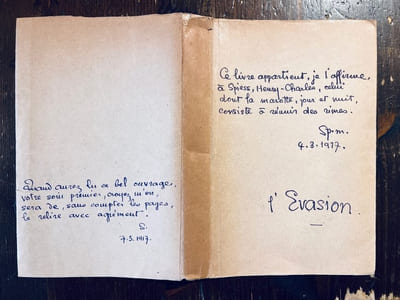 Quand aurez lu ce bel ouvrage,
votre soin premier, croyez m'en
sera de, sans compter les pages,
le relire avec agrément.
S.
7.3.1917.
Ce livre appartient, je l'affirme,
à Spiess, Henry-Charles, celui
dont la marotte, jour et nuit,
consiste à réunir des rimes.
Sp.m.
4.3.1917.
l'Evasion.